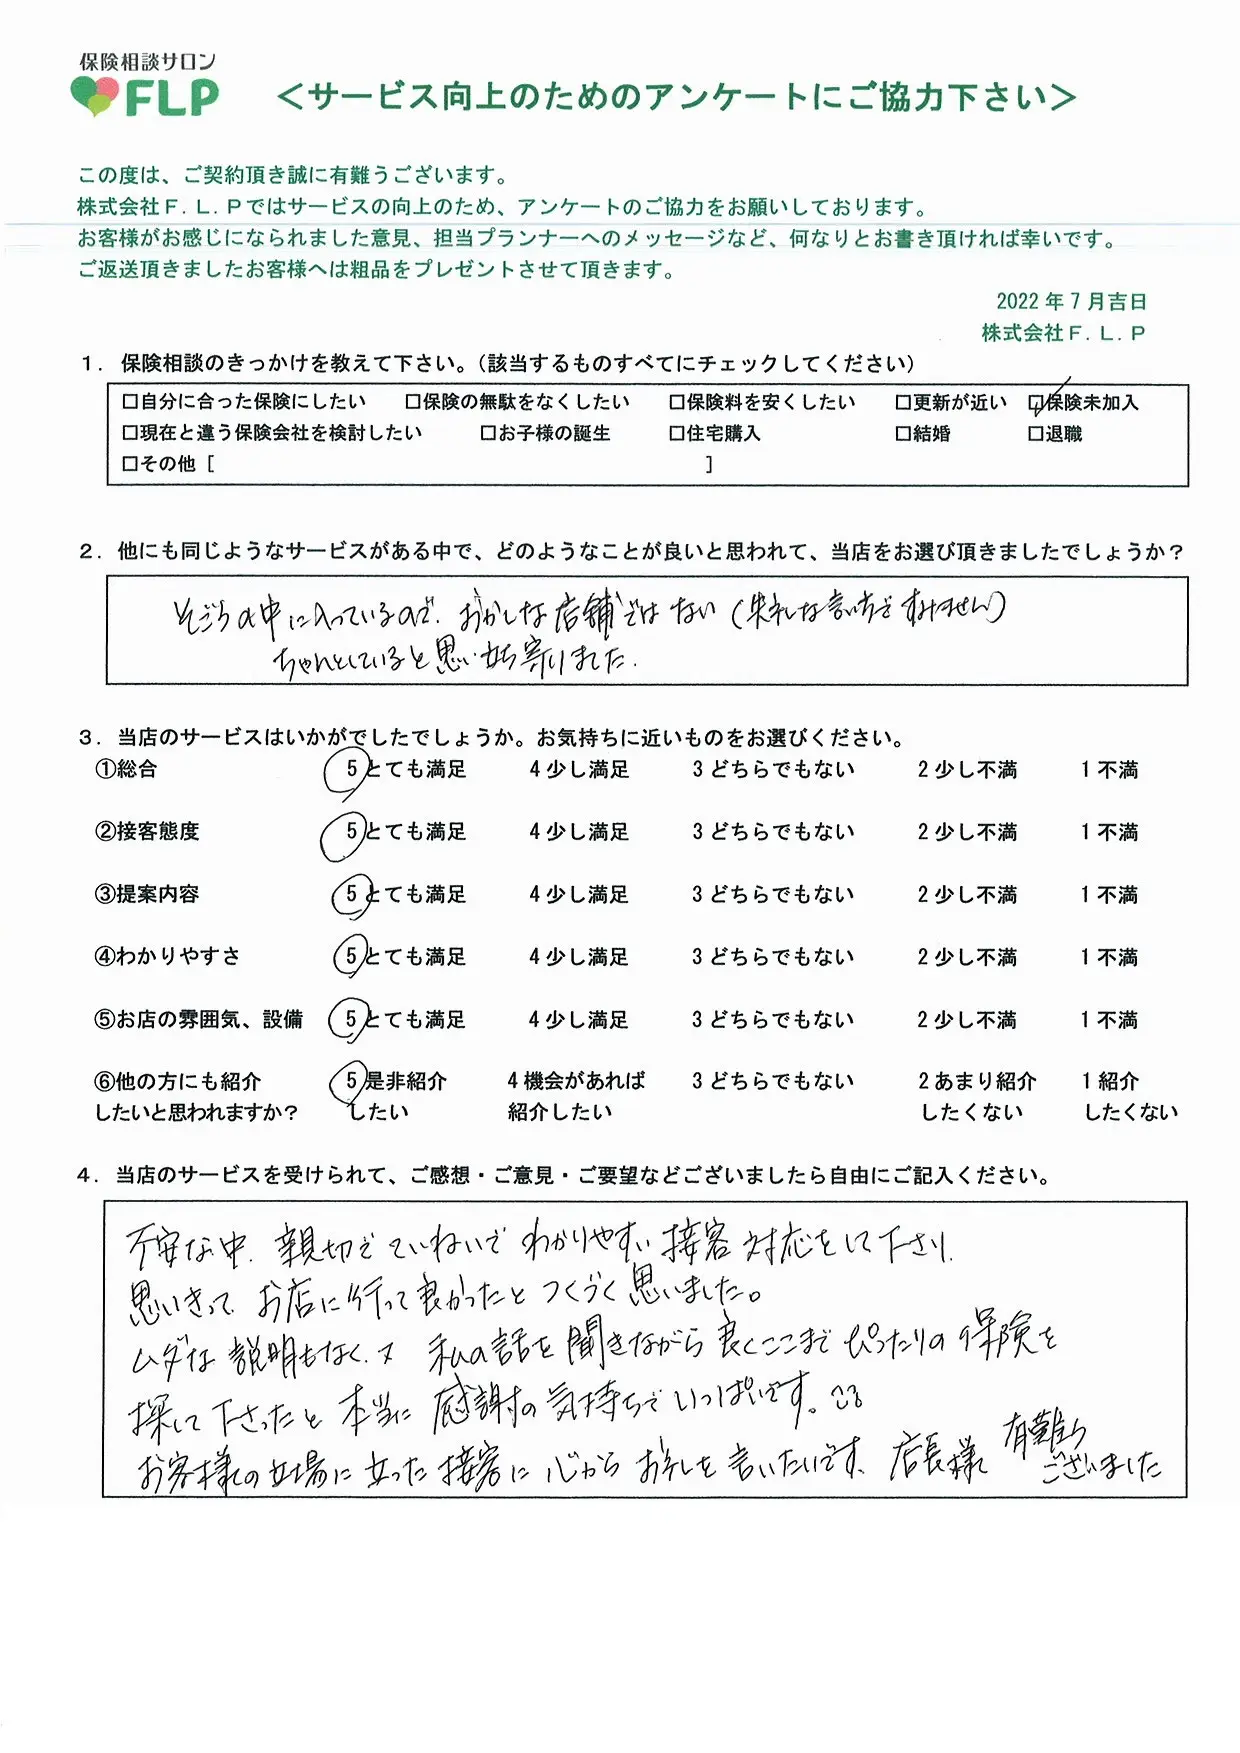 保険相談サロン
FLP
＜サービス向上のためのアンケートにご協力下さい＞
この度は、ご契約頂き誠に有難うございます。
株式会社Ｆ.Ｌ.Ｐではサービスの向上のため、アンケートのご協力をお願いしております。
お客様がお感じになられました意見、担当プランナーへのメッセージなど、何なりとお書き頂ければ幸いです。
ご返送頂きましたお客様へは粗品をプレゼントさせて頂きます。
2022年7月吉日
株式会社Ｆ.Ｌ.Ｐ
１．保険相談のきっかけを教えて下さい。（該当するものすべてにチェックしてください）
□自分に合った保険にしたい □保険の無駄をなくしたい □保険料を安くしたい □更新が近い ☑保険未加入
□現在と違う保険会社を検討したい □お子様の誕生 □住宅購入 □結婚 □退職
□その他［ ］
２．他にも同じようなサービスがある中で、どのようなことが良いと思われて、当店をお選び頂きましたでしょうか？
そごうの中に入っているので、おかしな店舗ではない（失礼な言い方ですみません）
ちゃんとしていると思い立ち寄りました.
３．当店のサービスはいかがでしたでしょうか。お気持ちに近いものをお選びください。
①総合 5とても満足 4少し満足 3どちらでもない 2少し不満 1不満
②接客態度 5とても満足 4少し満足 3どちらでもない 2少し不満 1不満
③提案内容 5とても満足 4少し満足 3どちらでもない 2少し不満 1不満
④わかりやすさ 5とても満足 4少し満足 3どちらでもない 2少し不満 1不満
⑤お店の雰囲気、設備 5とても満足 4少し満足 3どちらでもない 2少し不満 1不満
⑥他の方にも紹介 5是非紹介 4機会があれば 3どちらでもない 2あまり紹介 1紹介
したいと思われますか？ したい 紹介したい したくない したくない
４．当店のサービスを受けられて、ご感想・ご意見・ご要望などございましたら自由にご記入ください。
不安な中、親切でていねいでわかりやすい接客対応をして下さり、
思いきってお店に行って良かったとつくづく思いました。
ムダな説明もなく、又 私の話を聞きながら良くここまでぴったりの保険を
探して下さったと本当に感謝の気持ちでいっぱいです。
お客様の立場に立った接客に心からお礼を言いたいです、店長様 有難う
ございました